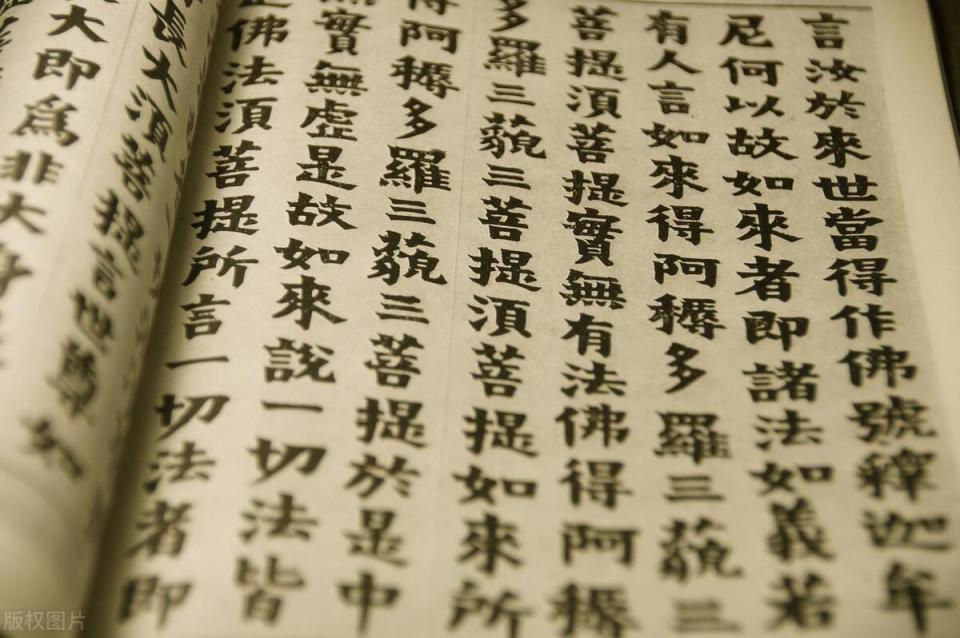 言汝於來世當得作佛號釋迦牟
尼何以故如來者即諸法如義若
有人言如來得阿耨多羅三藐三
菩提須菩提實無有法佛得阿耨
多羅三藐三菩提須菩提如來所
得阿耨多羅三藐三菩提於是中
無實無虛是故如來說一切法皆
是佛法須菩提所言一切法者即
長大須菩提言世尊如
大即爲非大身
版权图片